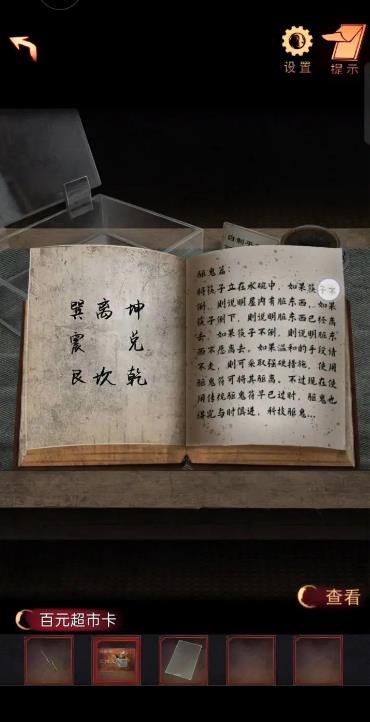 设置 提示
自制
巽 离 坤
震 兑
艮 坎 乾
驱鬼篇：
将筷子立在水碗中，如果筷子不
倒，则说明屋内有脏东西，如果
筷子倒下，则说明脏东西已经离
去。如果筷子不倒，则说明脏东
西不愿离去。如果温和的手段请
不走，则可采取强硬措施，使用
驱鬼符可将其驱离。不过现在使
用传统驱鬼符早已过时，驱鬼也
得与时俱进，科技驱鬼...
查看
百元超市卡